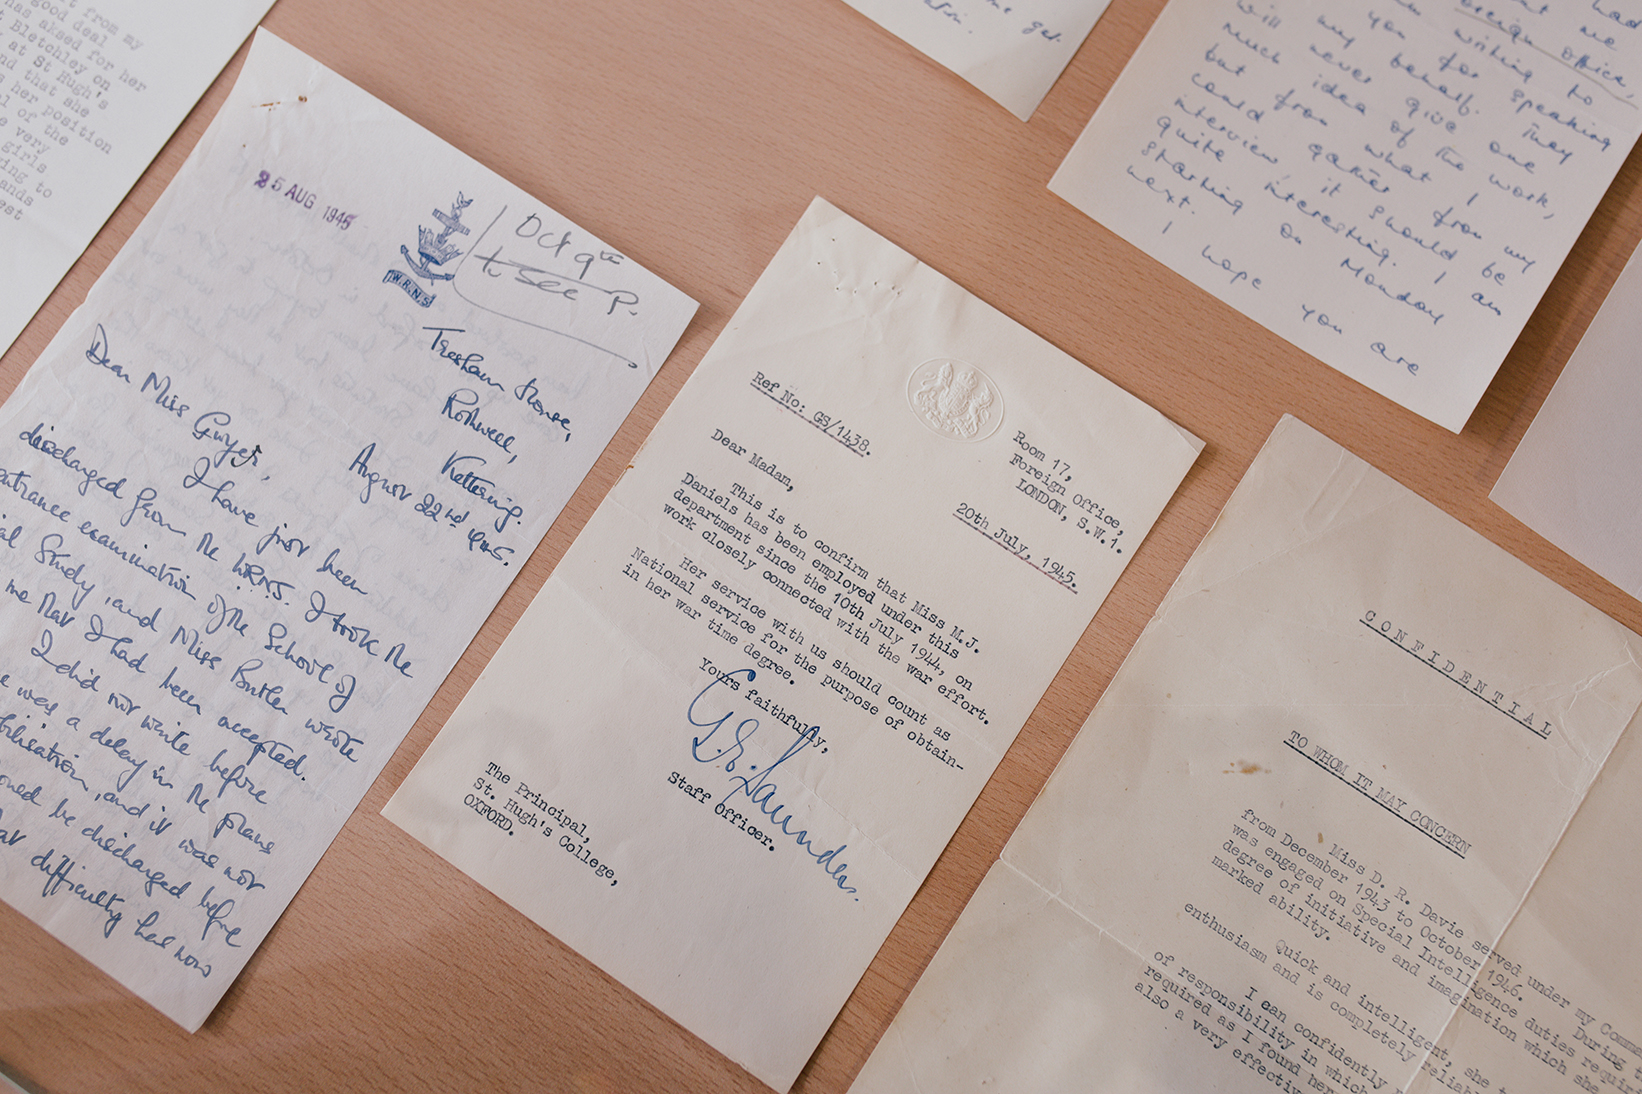 t from my
good deal
has aksed for her
Bletchley on
at St Hugh's
nd that she
her position
l of the
e very
girls
ing to
ands
est
25 AUG 1945
W.R.N.S
Oct 9th
to see P.
Tresham House,
Rothwell,
Kettering.
August 22nd 1945.
Dear Miss Gwyer,
I have just been
discharged from the WRNS. I took the
entrance examination of the School of
al Study, and Miss Butler wrote
me that I had been accepted.
I did not write before
e was a delay in the plans
bilisation, and it was not
be discharged before
hat difficulty has now
ge.
had
me
Foreign Office,
writing to
you for speaking
on my behalf. They
will never give one
much idea of the work,
but from what I
could gather from my
interview, it should be
quite interesting. I am
starting on Monday
next.
I hope you are
Ref No: GS/1438.
Room 17,
Foreign Office,
LONDON, S.W.1.
20th July, 1945.
Dear Madam,
This is to confirm that Miss M.J.
Daniels has been employed under this
department since the 10th July 1944, on
work closely connected with the war effort.
Her service with us should count as
National service for the purpose of obtain-
in her war time degree.
Yours faithfully,
G.E. Saunders.
Staff Officer.
The Principal,
St. Hugh's College,
OXFORD.
CONFIDENTIAL
TO WHOM IT MAY CONCERN
Miss D. R. Davie served under my Comma
from December 1943 to October 1946. During t
was engaged on Special Intelligence duties requiri
degree of initiative and imagination which she
marked ability.
Quick and intelligent, she
enthusiasm and is completely reliabl
I can confidently
of responsibility in which
required as I found her
also a very effective